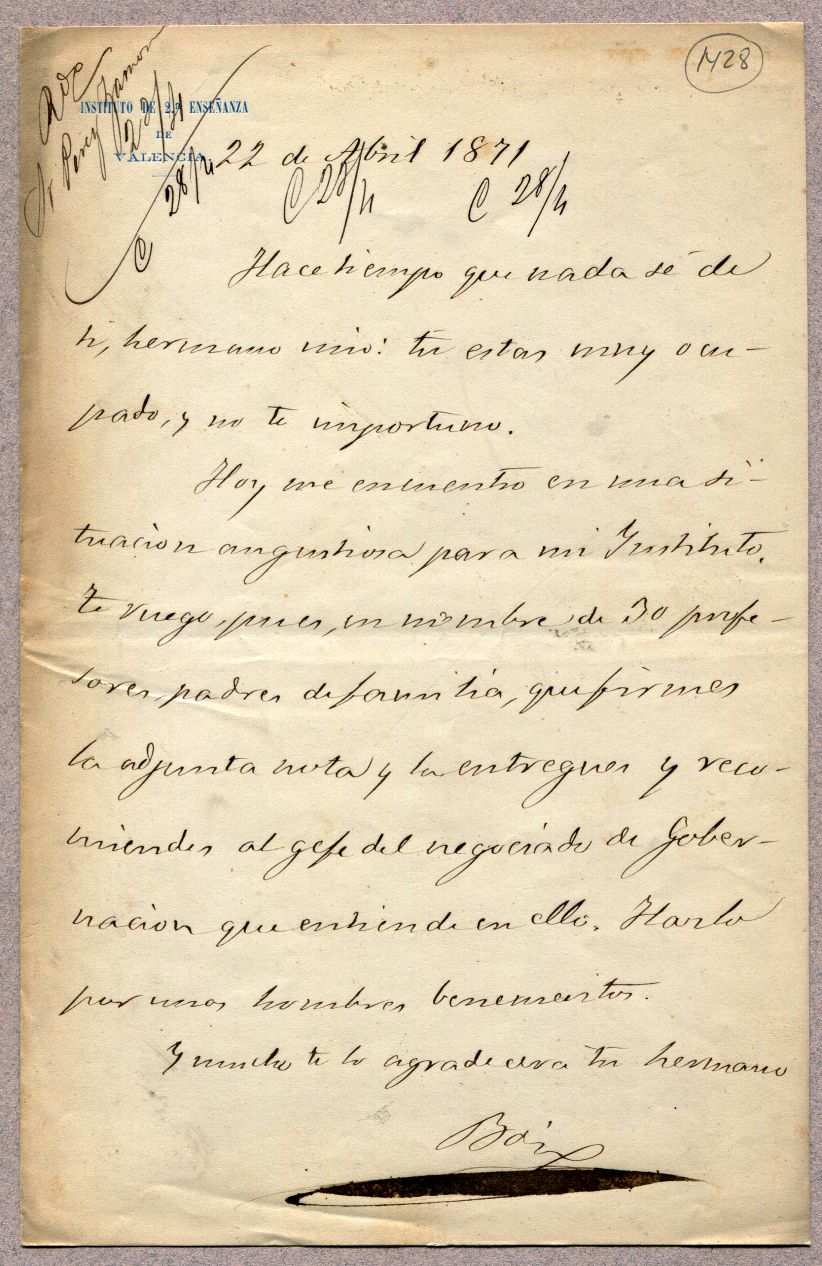 1428
INSTITUTO DE 2.ª ENSEÑANZA
DE
VALENCIA
22 de Abril 1871
C 28/4 C 28/4 C 28/4
Hace tiempo que nada sé de
ti, hermano mio: tu estas muy ocu-
pado, y no te importuno.
Hoy me encuentro en una si-
tuacion angustiosa para mi Instituto.
Te ruego, pues, en nombre de 30 profe-
sores, padres de familia, que firmes
la adjunta nota y la entregues y reco-
miendes al gefe del negociado de Gober-
nacion que entiende en ello. Hazlo
por unos hombres benemeritos.
Y mucho te lo agradecera tu hermano
Boix